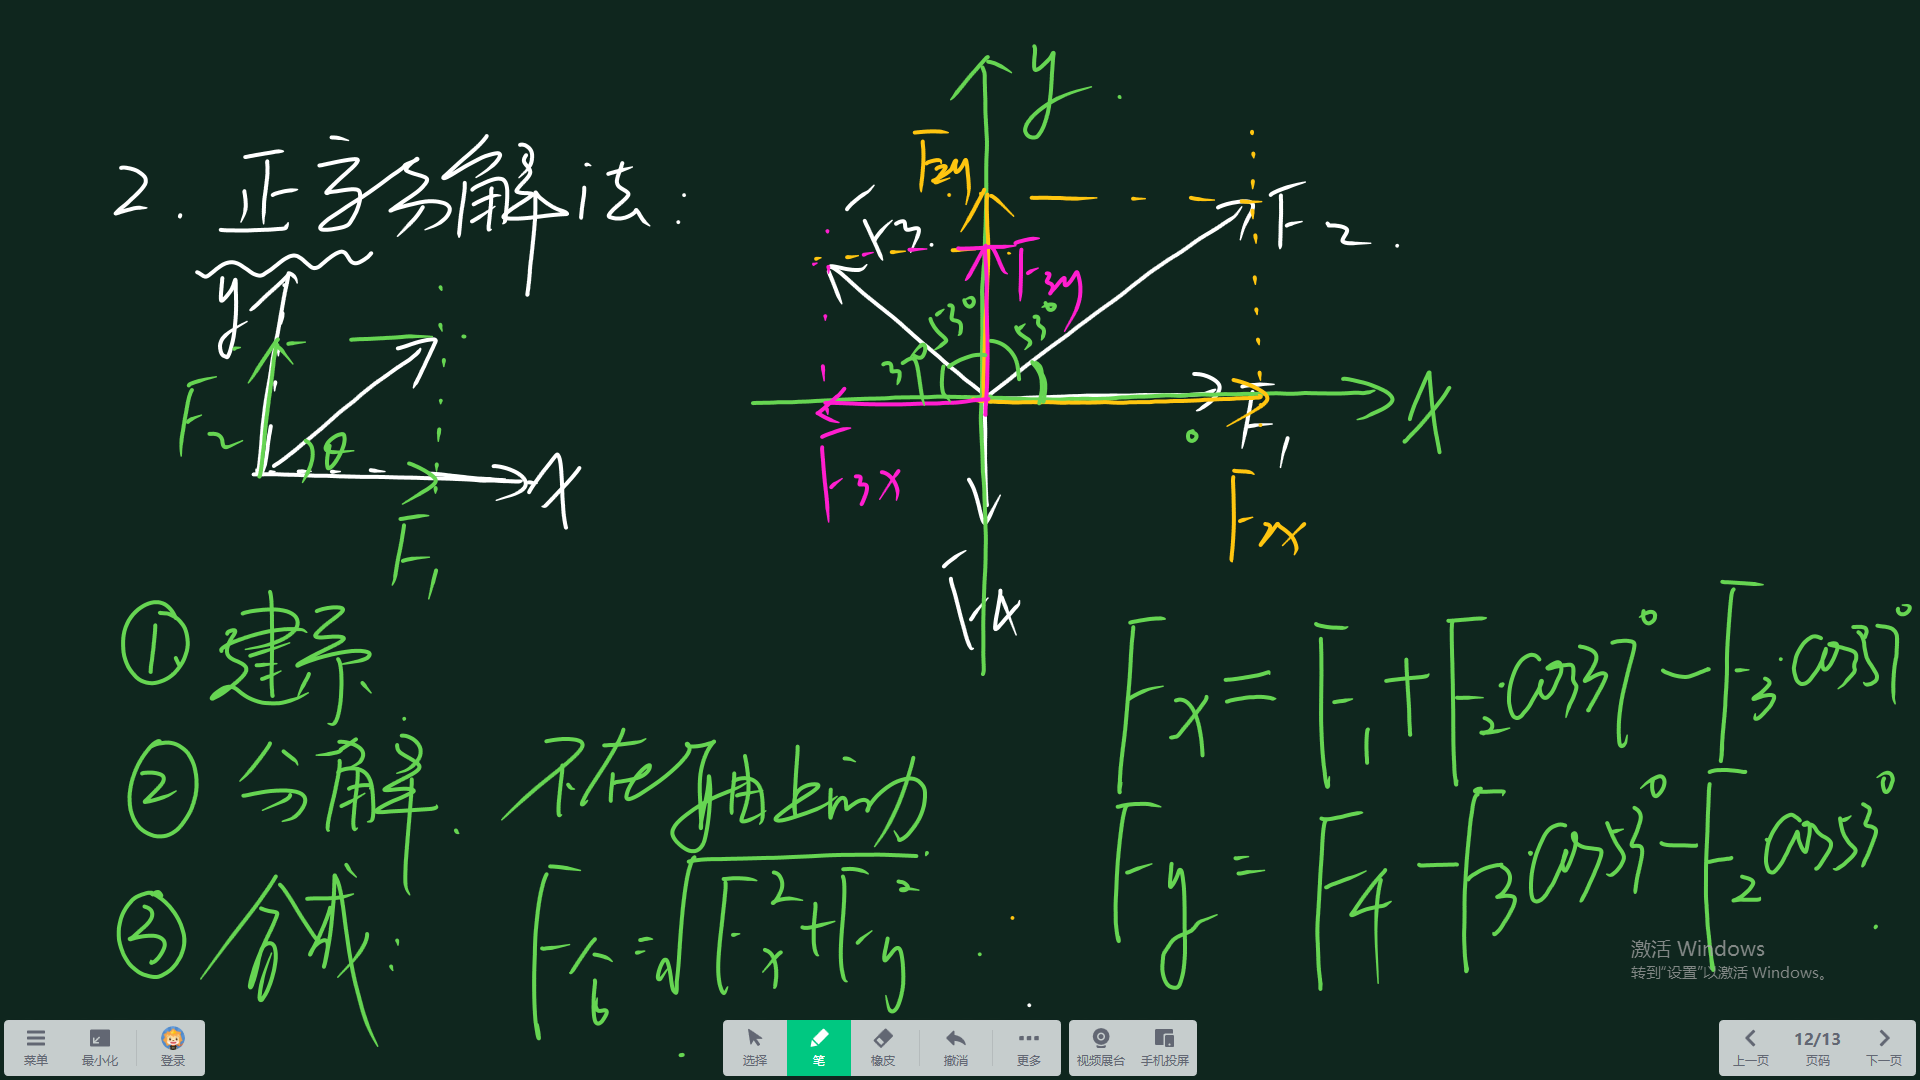 2. 正交分解法:
y
F₂
θ
x
F₁
y
F₂y
F₃
F₃y
F₂
53° 53°
37°
x
F₁
F₃x
F₂x
F₄
① 建系
② 分解. 不在轴上的力
③ 合成: F合=√Fx²+Fy²
Fx = F₁+F₂cos37°-F₃cos37°
Fy = F₄-F₃cos53°-F₂cos53°
激活 Windows
转到“设置”以激活 Windows。
菜单 最小化 登录
选择 笔 橡皮 撤消 更多
视频展台 手机投屏
上一页 12/13 页码 下一页